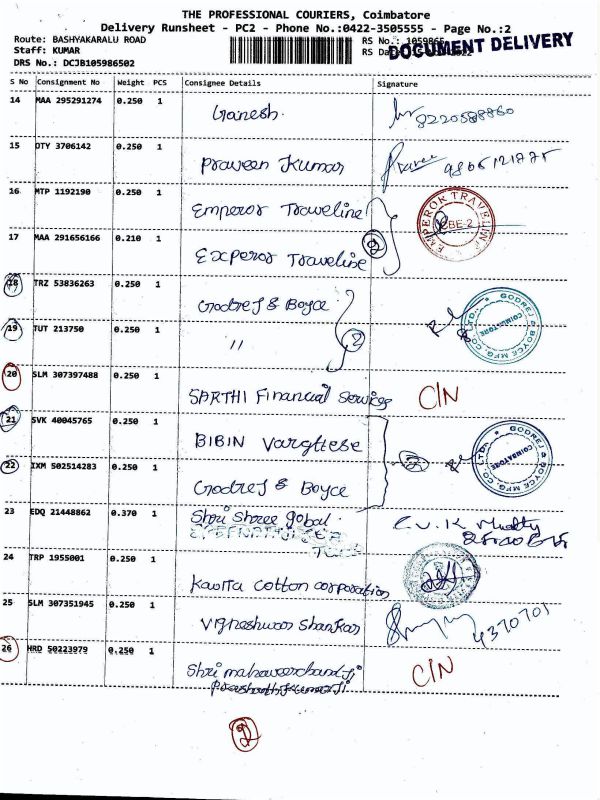 THE PROFESSIONAL COURIERS, Coimbatore
Delivery Runsheet - PC2 - Phone No.:0422-3505555 - Page No.:2
Route: BASHYAKARALU ROAD RS No.: 1059865
Staff: KUMAR RS Da
DOCUMENT DELIVERY
DRS No.: DCJB105986502
S No Consignment No Weight PCS Consignee Details Signature
14 MAA 295291274 0.250 1 Ganesh. 8220588860
15 OTY 3706142 0.250 1 Praveen Kumar
16 MTP 1192190 0.250 1 Emperor Traveline
EMPEROR TRAVELINE CBE-2
17 MAA 291656166 0.210 1 Experor Traveline
2
18 TRZ 53836263 0.250 1 Godrej & Boyce
GODREJ & BOYCE MFG. CO. LTD. COIMBATORE
19 TUT 213750 0.250 1 "
2
20 SLM 307397488 0.250 1 SARTHI Financial Services C/N
21 SVK 40045765 0.250 1 BIBIN Varghese
GODREJ & BOYCE MFG. CO. LTD. COIMBATORE
22 IXM 502514283 0.250 1 Godrej & Boyce
23 EDQ 21448862 0.370 1 Shri Shree gobal.
24 TRP 1955001 0.250 1 Kavita cotton corporation
25 SLM 307351945 0.250 1 Vigneshwar Shankar 4370701
26 HRD 50223979 0.250 1 Shri mahaveerchand Ji C/N
Prashanth Kumar Ji
2